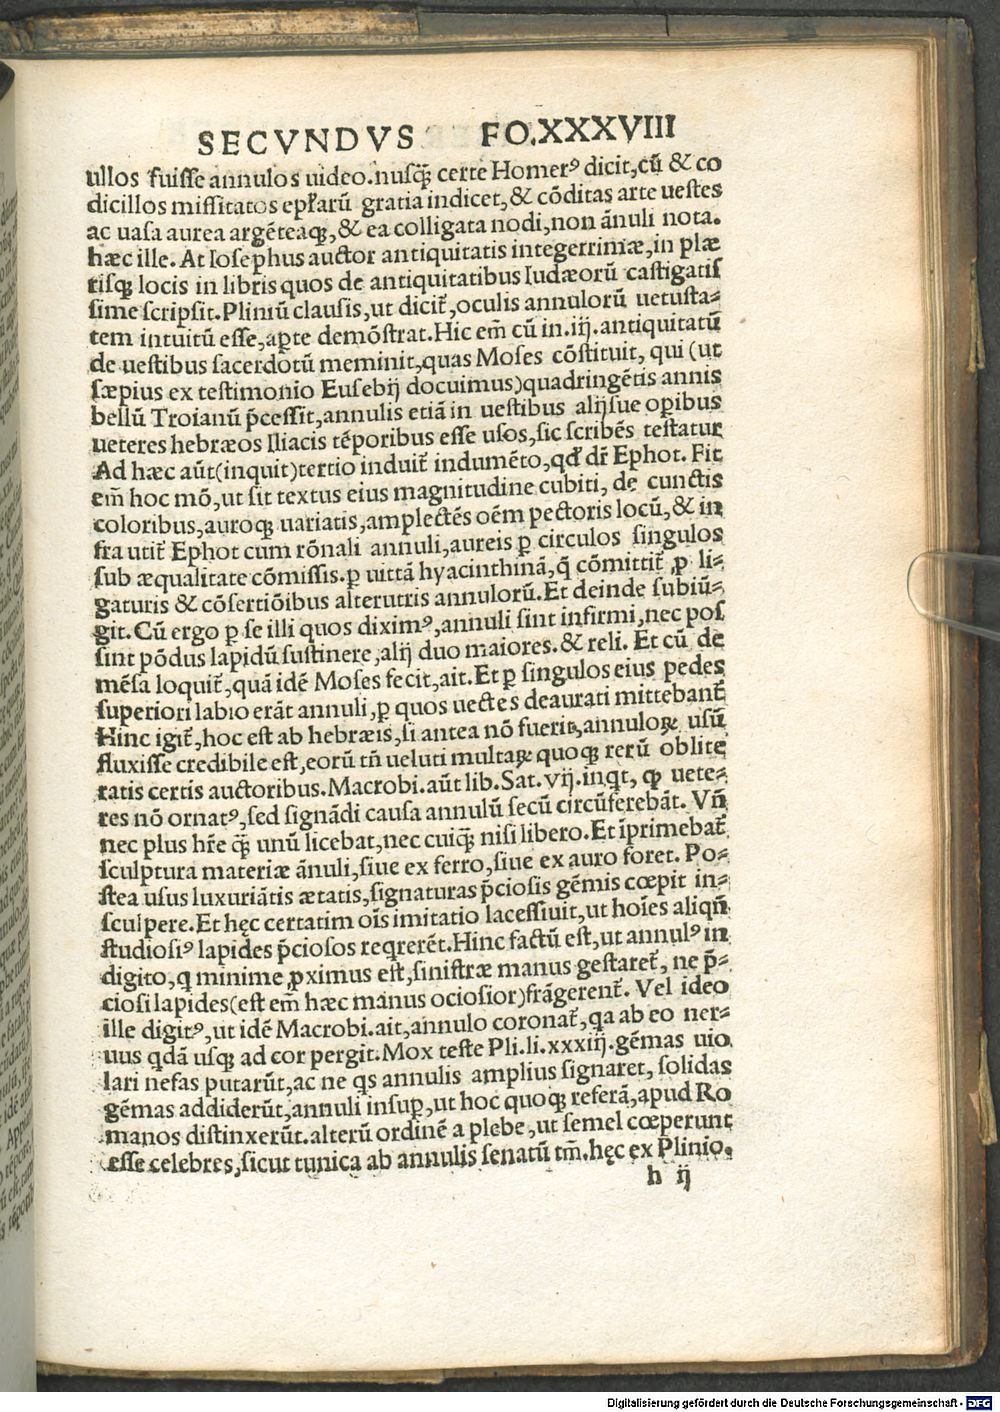 SECVNDVS FO.XXXVIII
ullos fuisse annulos uideo.nusq̃ certe Homerꝰ dicit,cũ & co
dicillos missitatos epl̃arũ gratia indicet,& cõditas arte uestes
ac uasa aurea argẽteaqꝫ,& ea colligata nodi,non ãnuli nota.
hæc ille. At Iosephus auctor antiquitatis integerrimæ,in plæ
risqꝫ locis in libris quos de antiquitatibus Iudæorũ castigatis
sime scripsit.Pliniũ clausis,ut dicit̃,oculis annulorũ uetusta⸗
tem intuitũ esse,aꝑte demõstrat.Hic em̃ cũ in.iij.antiquitatũ
de uestibus sacerdotũ meminit,quas Moses cõstituit, qui (ut
sæpius ex testimonio Eusebij docuimus)quadringẽtis annis
bellũ Troianũ p̃cessit,annulis etiã in uestibus alijsue oꝑibus
ueteres hebræos Iliacis tẽporibus esse usos,sic scribẽs testatur
Ad hæc aũt(inquit)tertio induit̃ indumẽto,qd̃ dr̃ Ephot. Fit
em̃ hoc mõ,ut sit textus eius magnitudine cubiti, de cunctis
coloribus,auroqꝫ uariatis,amplectẽs oẽm pectoris locũ,& in
fra utit̃ Ephot cum rõnali annuli,aureis ꝑ circulos singulos
sub æqualitate cõmissis.ꝑ uittã hyacinthinã,q̃ cõmittit̃ ꝑ li⸗
gaturis & cõsertiõibus alterutris annulorũ.Et deinde subiũ⸗
git. Cũ ergo ꝑ se illi quos diximꝰ,annuli sint infirmi,nec pos
sint põdus lapidũ sustinere,alij duo maiores.& reli. Et cũ de
mẽsa loquit̃,quã idẽ Moses fecit,ait.Et ꝑ singulos eius pedes
superiori labio erãt annuli,ꝑ quos uectes deaurati mittebant̃
Hinc igit̃,hoc est ab hebræis,si antea nõ fuerit,annuloꝝ usũ
fluxisse credibile est,eorũ tñ ueluti multaꝝ quoqꝫ rerũ oblite
ratis certis auctoribus.Macrobi.aũt lib.Sat.vij.inqt, ꝙ uete⸗
res nõ ornatꝰ,sed signãdi causa annulũ secũ circũferebãt. Vñ
nec plus hr̃e q̃ unũ licebat,nec cuiq̃ nisi libero.Et ĩprimebat̃
sculptura materiæ ãnuli,siue ex ferro,siue ex auro foret. Po⸗
stea usus luxuriãtis ætatis,signaturas p̃ciosis gẽmis cœpit in⸗
sculpere.Et hęc certatim oĩs imitatio lacessiuit,ut hoĩes aliqñ
studiosiꝰ lapides p̃ciosos reqrerẽt.Hinc factũ est,ut annulꝰ in
digito,q minime ꝓximus est,sinistræ manus gestaret̃, ne p̃⸗
ciosi lapides(est em̃ hæc manus ociosior)frãgerent̃. Vel ideo
ille digitꝰ,ut idẽ Macrobi.ait,annulo coronat̃,qa ab eo ner⸗
uus qdã usqꝫ ad cor pergit.Mox teste Pli.li.xxxiij.gẽmas uio
lari nefas putarũt,ac ne qs annulis amplius signaret, solidas
gẽmas addiderũt,annuli insuꝑ,ut hoc quoqꝫ referã,apud Ro
manos distinxerũt.alterũ ordinẽ a plebe,ut semel cœperunt
esse celebres,sicut tunica ab annulis senatũ tm̃.hęc ex Plinio.
h ij
Digitalisierung gefördert durch die Deutsche Forschungsgemeinschaft - DFG